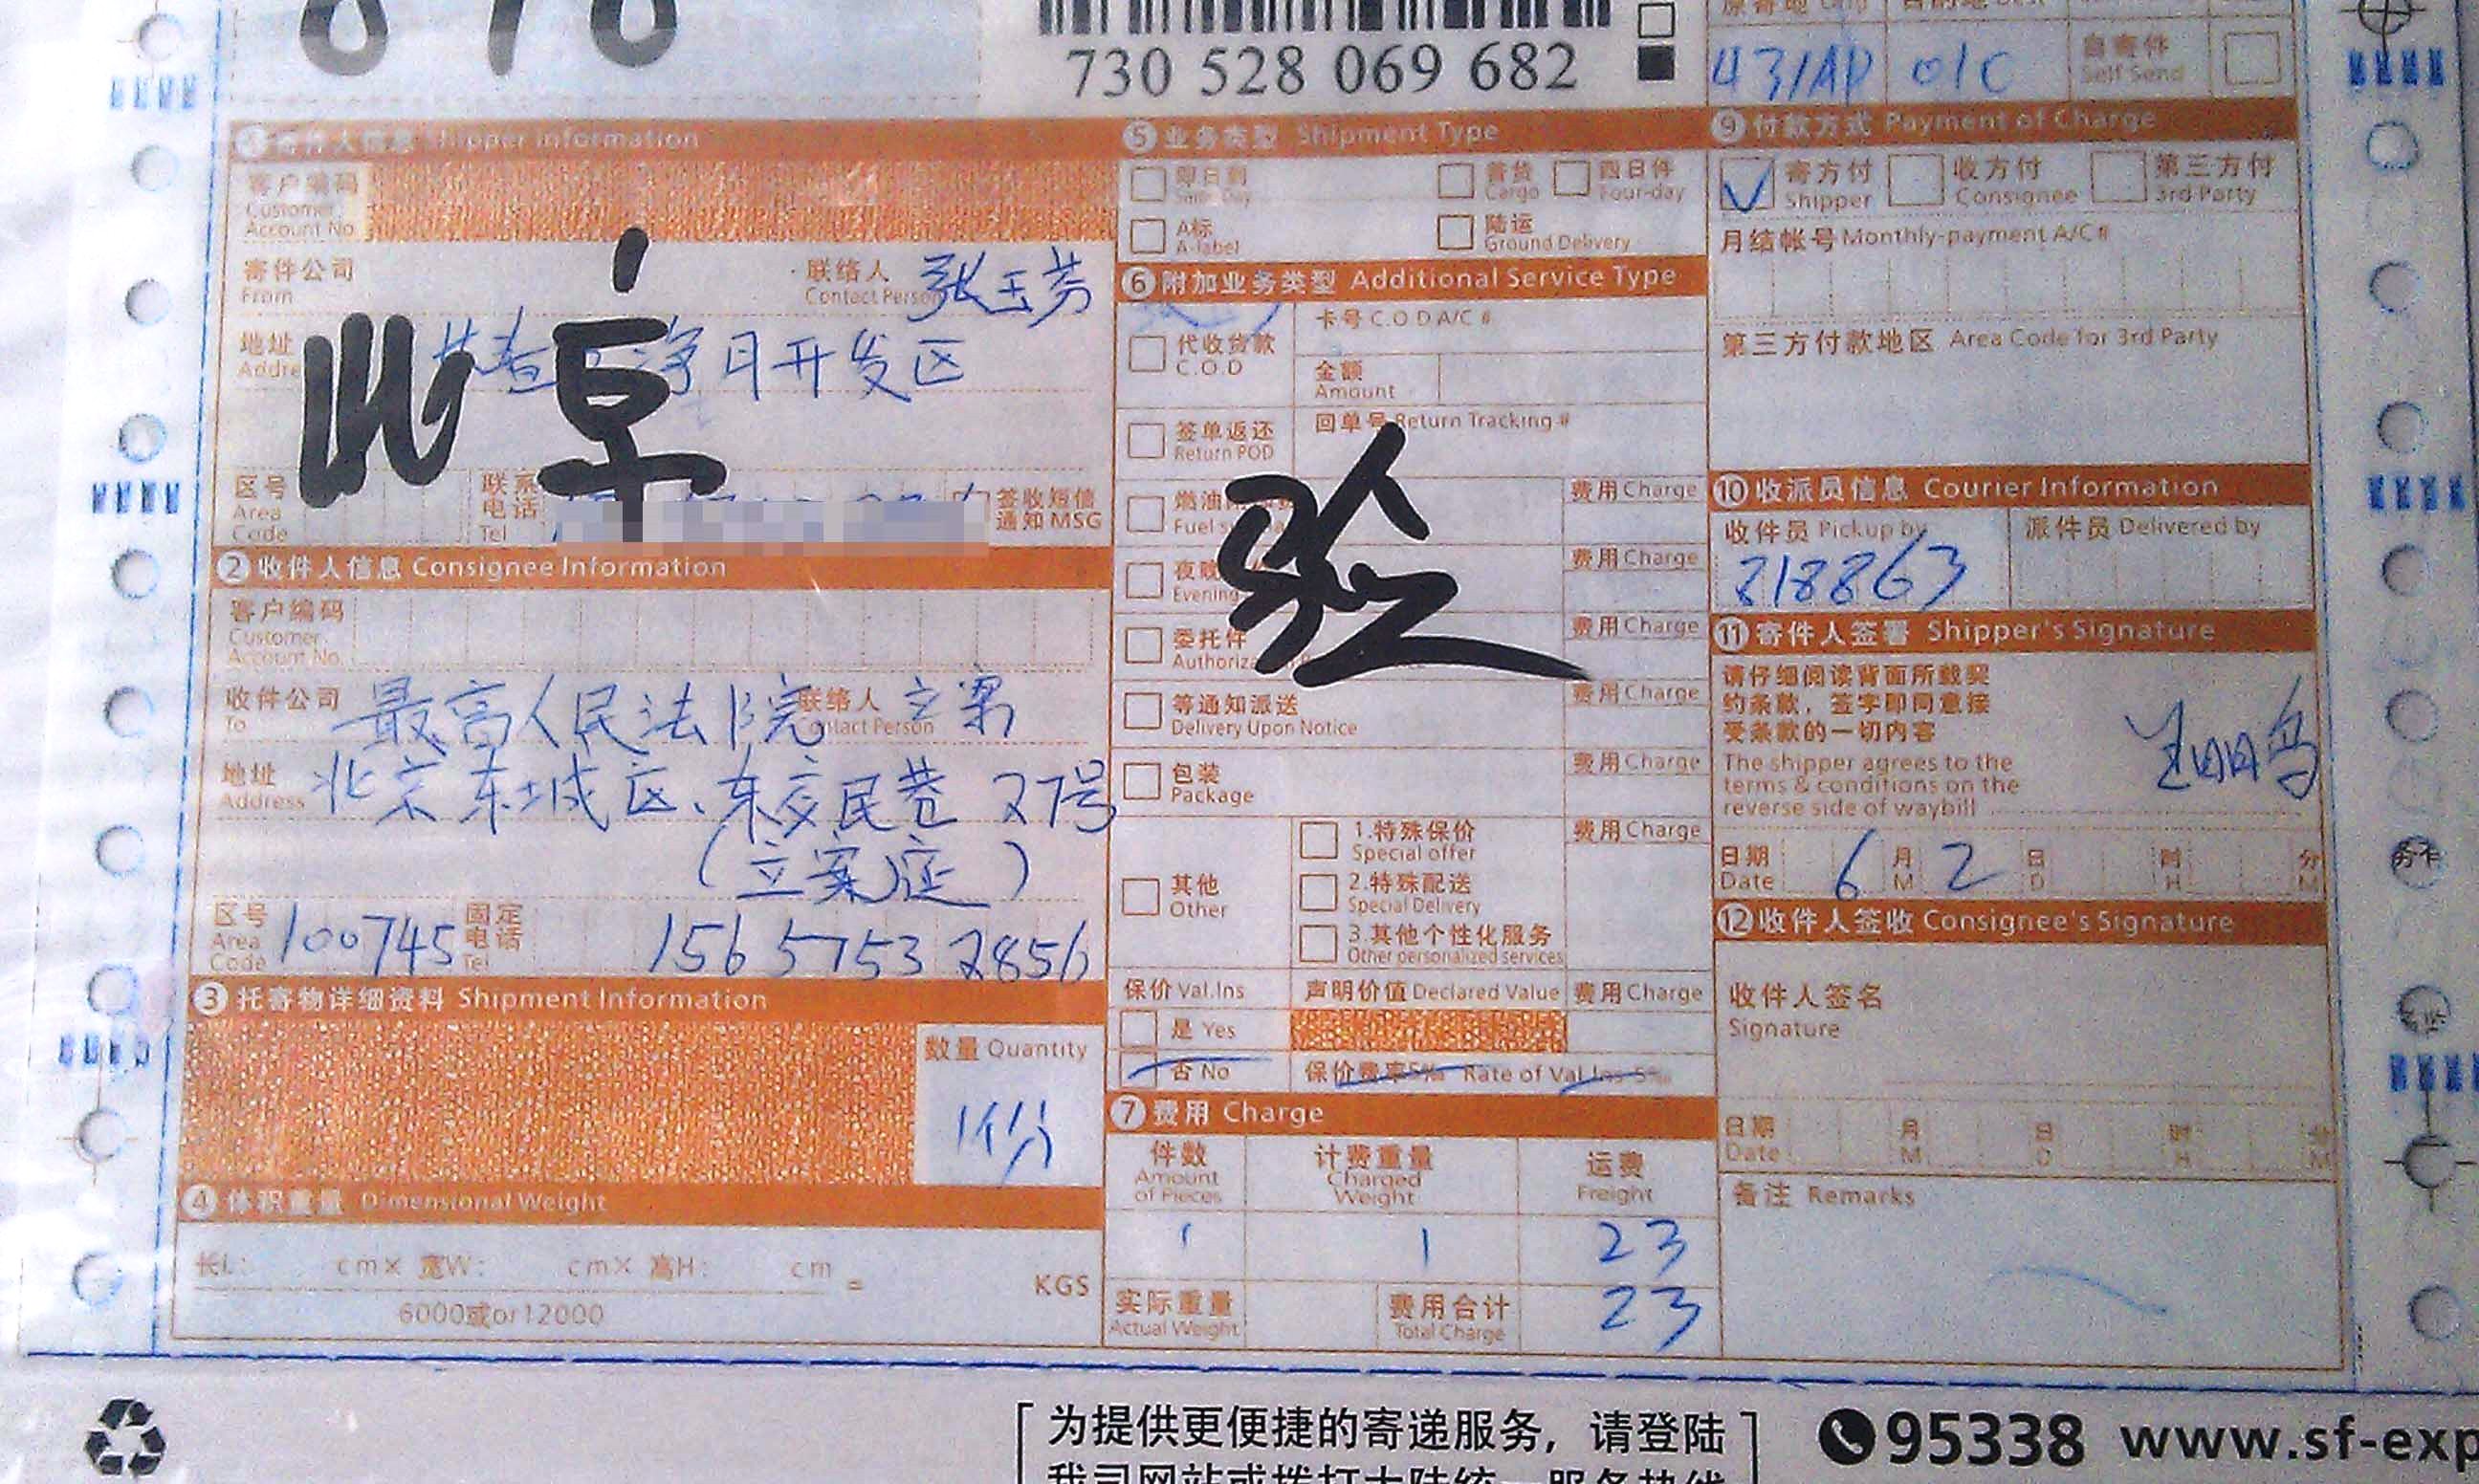 876
730 528 069 682
431AP 01C
自寄件
Self Send
1 寄件人信息 Shipper Information
客户编码
Customer
Account No.
寄件公司
From
联络人 张玉芳
Contact Person
地址 长春 净月开发区
Addre
北京
区号
Area
Code
联系
电话
Tel
签收短信
通知MSG
2 收件人信息 Consignee Information
客户编码
Customer
Account No.
收件公司 最高人民法院
To
联络人 立案
Contact Person
地址 北京东城区、东交民巷 27号
Address
(立案庭)
区号 100745
Area
Code
固定
电话 156 5753 2856
Tel
3 托寄物详细资料 Shipment Information
数量 Quantity
1份
4 体积重量 Dimensional Weight
长L: cm× 宽W: cm× 高H: cm = KGS
6000或or12000
5 业务类型 Shipment Type
即日到
Same Day
普货
Cargo
四日件
Four-day
A标
A-label
陆运
Ground Delivery
6 附加业务类型 Additional Service Type
代收货款
C.O.D
卡号 C.O.D A/C #
金额
Amount
签单返还
Return POD
回单号 Return Tracking #
验
燃油
Fuel
费用 Charge
夜晚
Evening
费用 Charge
委托件
Authoriza
费用 Charge
等通知派送
Delivery Upon Notice
费用 Charge
包装
Package
费用 Charge
其他
Other
1.特殊保价
Special offer
2.特殊配送
Special Delivery
3.其他个性化服务
Other personalized services
费用 Charge
保价 Val.Ins
声明价值 Declared Value
费用 Charge
是 Yes
否 No
保价费率5‰ Rate of Val.Ins 5‰
7 费用 Charge
件数
Amount
of Pieces
计费重量
Charged
Weight
运费
Freight
1 1 23
实际重量
Actual Weight
费用合计
Total Charge
23
9 付款方式 Payment of Charge
寄方付
Shipper
收方付
Consignee
第三方付
3rd Party
月结帐号 Monthly-payment A/C #
第三方付款地区 Area Code for 3rd Party
10 收派员信息 Courier Information
收件员 Pickup by
818863
派件员 Delivered by
11 寄件人签署 Shipper's Signature
请仔细阅读背面所载契
约条款，签字即同意接
受条款的一切内容
The shipper agrees to the
terms & conditions on the
reverse side of waybill
日期 6 月 2 日 时 分
Date M D H M
12 收件人签收 Consignee's Signature
收件人签名
Signature
日期 月 日 时 分
Date M D H M
备注 Remarks
为提供更便捷的寄递服务，请登陆
我司网站或拨打大陆统一服务热线
95338 www.sf-exp